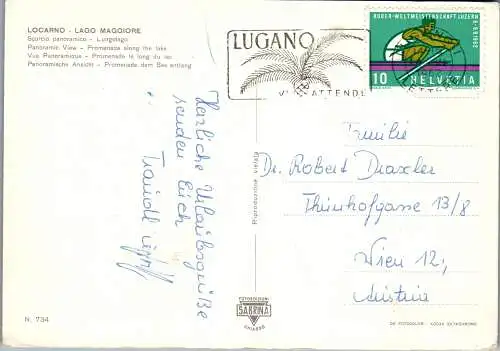 LOCARNO - LAGO MAGGIORE
Scorcio panoramico - Lungolago
Panoramic View - Promenade along the lake
Vue Panoramique - Promenade le long du lac
Panoramische Ansicht - Promenade dem See entlang
LUGANO
VI ATTENDE
RUDER-WELTMEISTERSCHAFT LUZERN
10 HELVETIA
Herzliche Urlaubsgrüße
senden Euch
Traudl
Familie
Dr. Robert Draxler
Thunhofgasse 13/8
Wien 12,
Austria
Riproduzione vietata
FOTOEDIZIONI
SABRINA
CHIASSO
N. 734